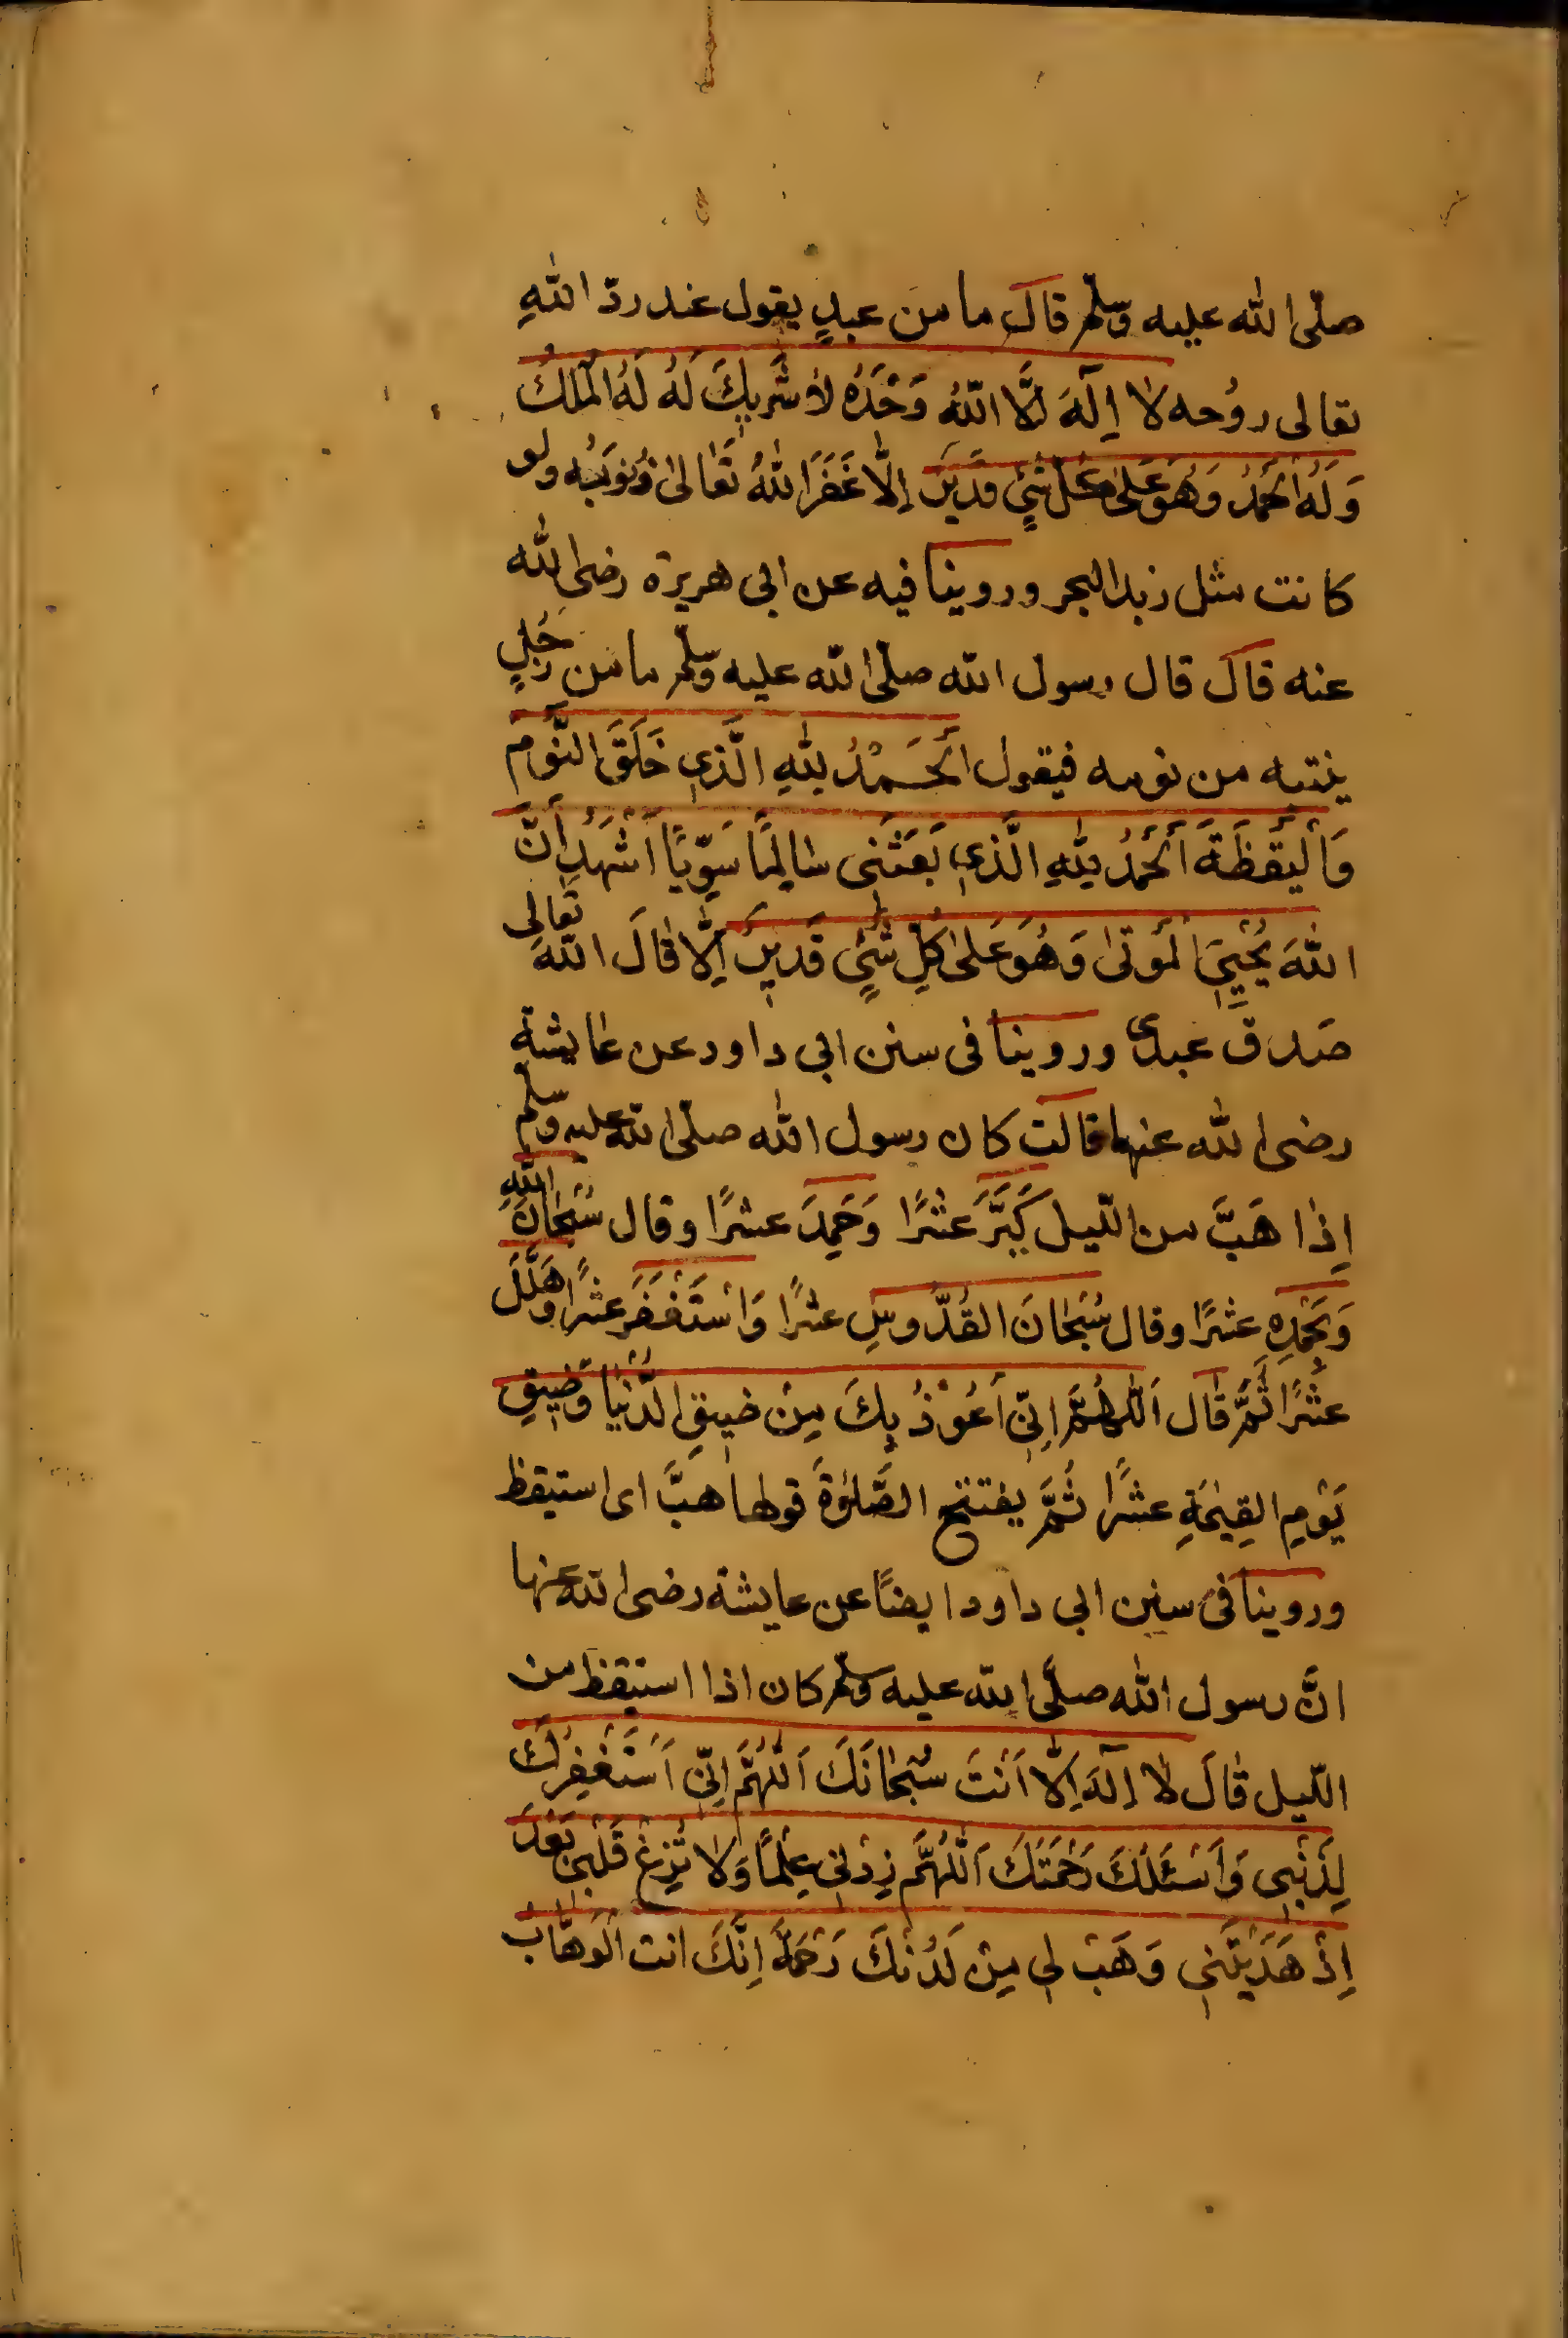 صلّى الله عليه وسلّم قال ما من عبدٍ يقول عند ردّ اللهِ
تعالى روُحه لا إِلَهَ إلَّا اللهُ وَحْدَهُ لا شَرِيكَ لَهُ لَهُ الْمُلْكُ
وَلَهُ الْحَمْدُ وَهُوَ عَلَى كُلِّ شَيْءٍ قَدِيرٌ إِلَّا غَفَرَ اللهُ تَعَالَى ذُنُوبَهُ ولو
كانت مثل زبد البحر وروينا فيه عن ابى هريرة رضى الله
عنه قال قال رسول الله صلّى الله عليه وسلّم ما من رَجُلٍ
ينتبه من نومه فيقول اَلْحَمْدُ لِلّهِ الَّذِي خَلَقَ النَّوْمَ
وَالْيَقْظَةَ اَلْحَمْدُ لِلّهِ الَّذِي بَعَثَنِى سَالِمًا سَوِيًّا اَشْهَدُ أَنَّ
اللهَ يُحْيِيَ الْمَوْتَى وَهُوَ عَلَى كُلِّ شَيْءٍ قَدِيرٌ اِلَّا قَالَ اللهُ تعالى
صَدق عبدى وروينا فى سنن ابى داود عن عايشة
رضى الله عنها قالت كان رسول الله صلّى الله عليه وسلم
إِذا هَبَّ من اللّيل كَبَّرَ عَشْرًا وَحَمِدَ عشرًا وقال سُبْحَانَ اللهِ
وَبِحَمْدِهِ عشرًا وقال سُبْحَانَ القُدُّوسِ عشرًا وَاسْتَغْفَرَ عشرًا وَهَلَّلَ
عشْرًا ثُمَّ قال اَللّهُمَّ اِنِّى اَعُوْذُ بِكَ مِنْ ضِيقِ الدُّنْيَا وَضِيقِ
يَوْمِ القِيٰمَةِ عشرًا ثُمَّ يفتتح الصَّلوٰةَ قولها هبَّ اى استيقظ
وروينا فى سنن ابى داود ايضًا عن عايشة رضى الله عنها
انَّ رسول الله صلَّى الله عليه وسلّم كان اذا استيقظ من
اللّيل قَالَ لا اِلَهَ اِلَّا اَنْتَ سُبْحَانَكَ اَللّهُمَّ اِنِّى اَسْتَغْفِرُكَ
لِذَنْبِى وَاَسْئَلُكَ رَحْمَتَكَ اَللّهُمَّ زِدْنِى عِلْمًا وَلا تُزِغْ قَلْبِى بَعْدَ
اِذْ هَدَيْتَنِى وَهَبْ لِى مِنْ لَدُنْكَ رَحْمَةً اِنَّكَ انت الْوَهَّابُ